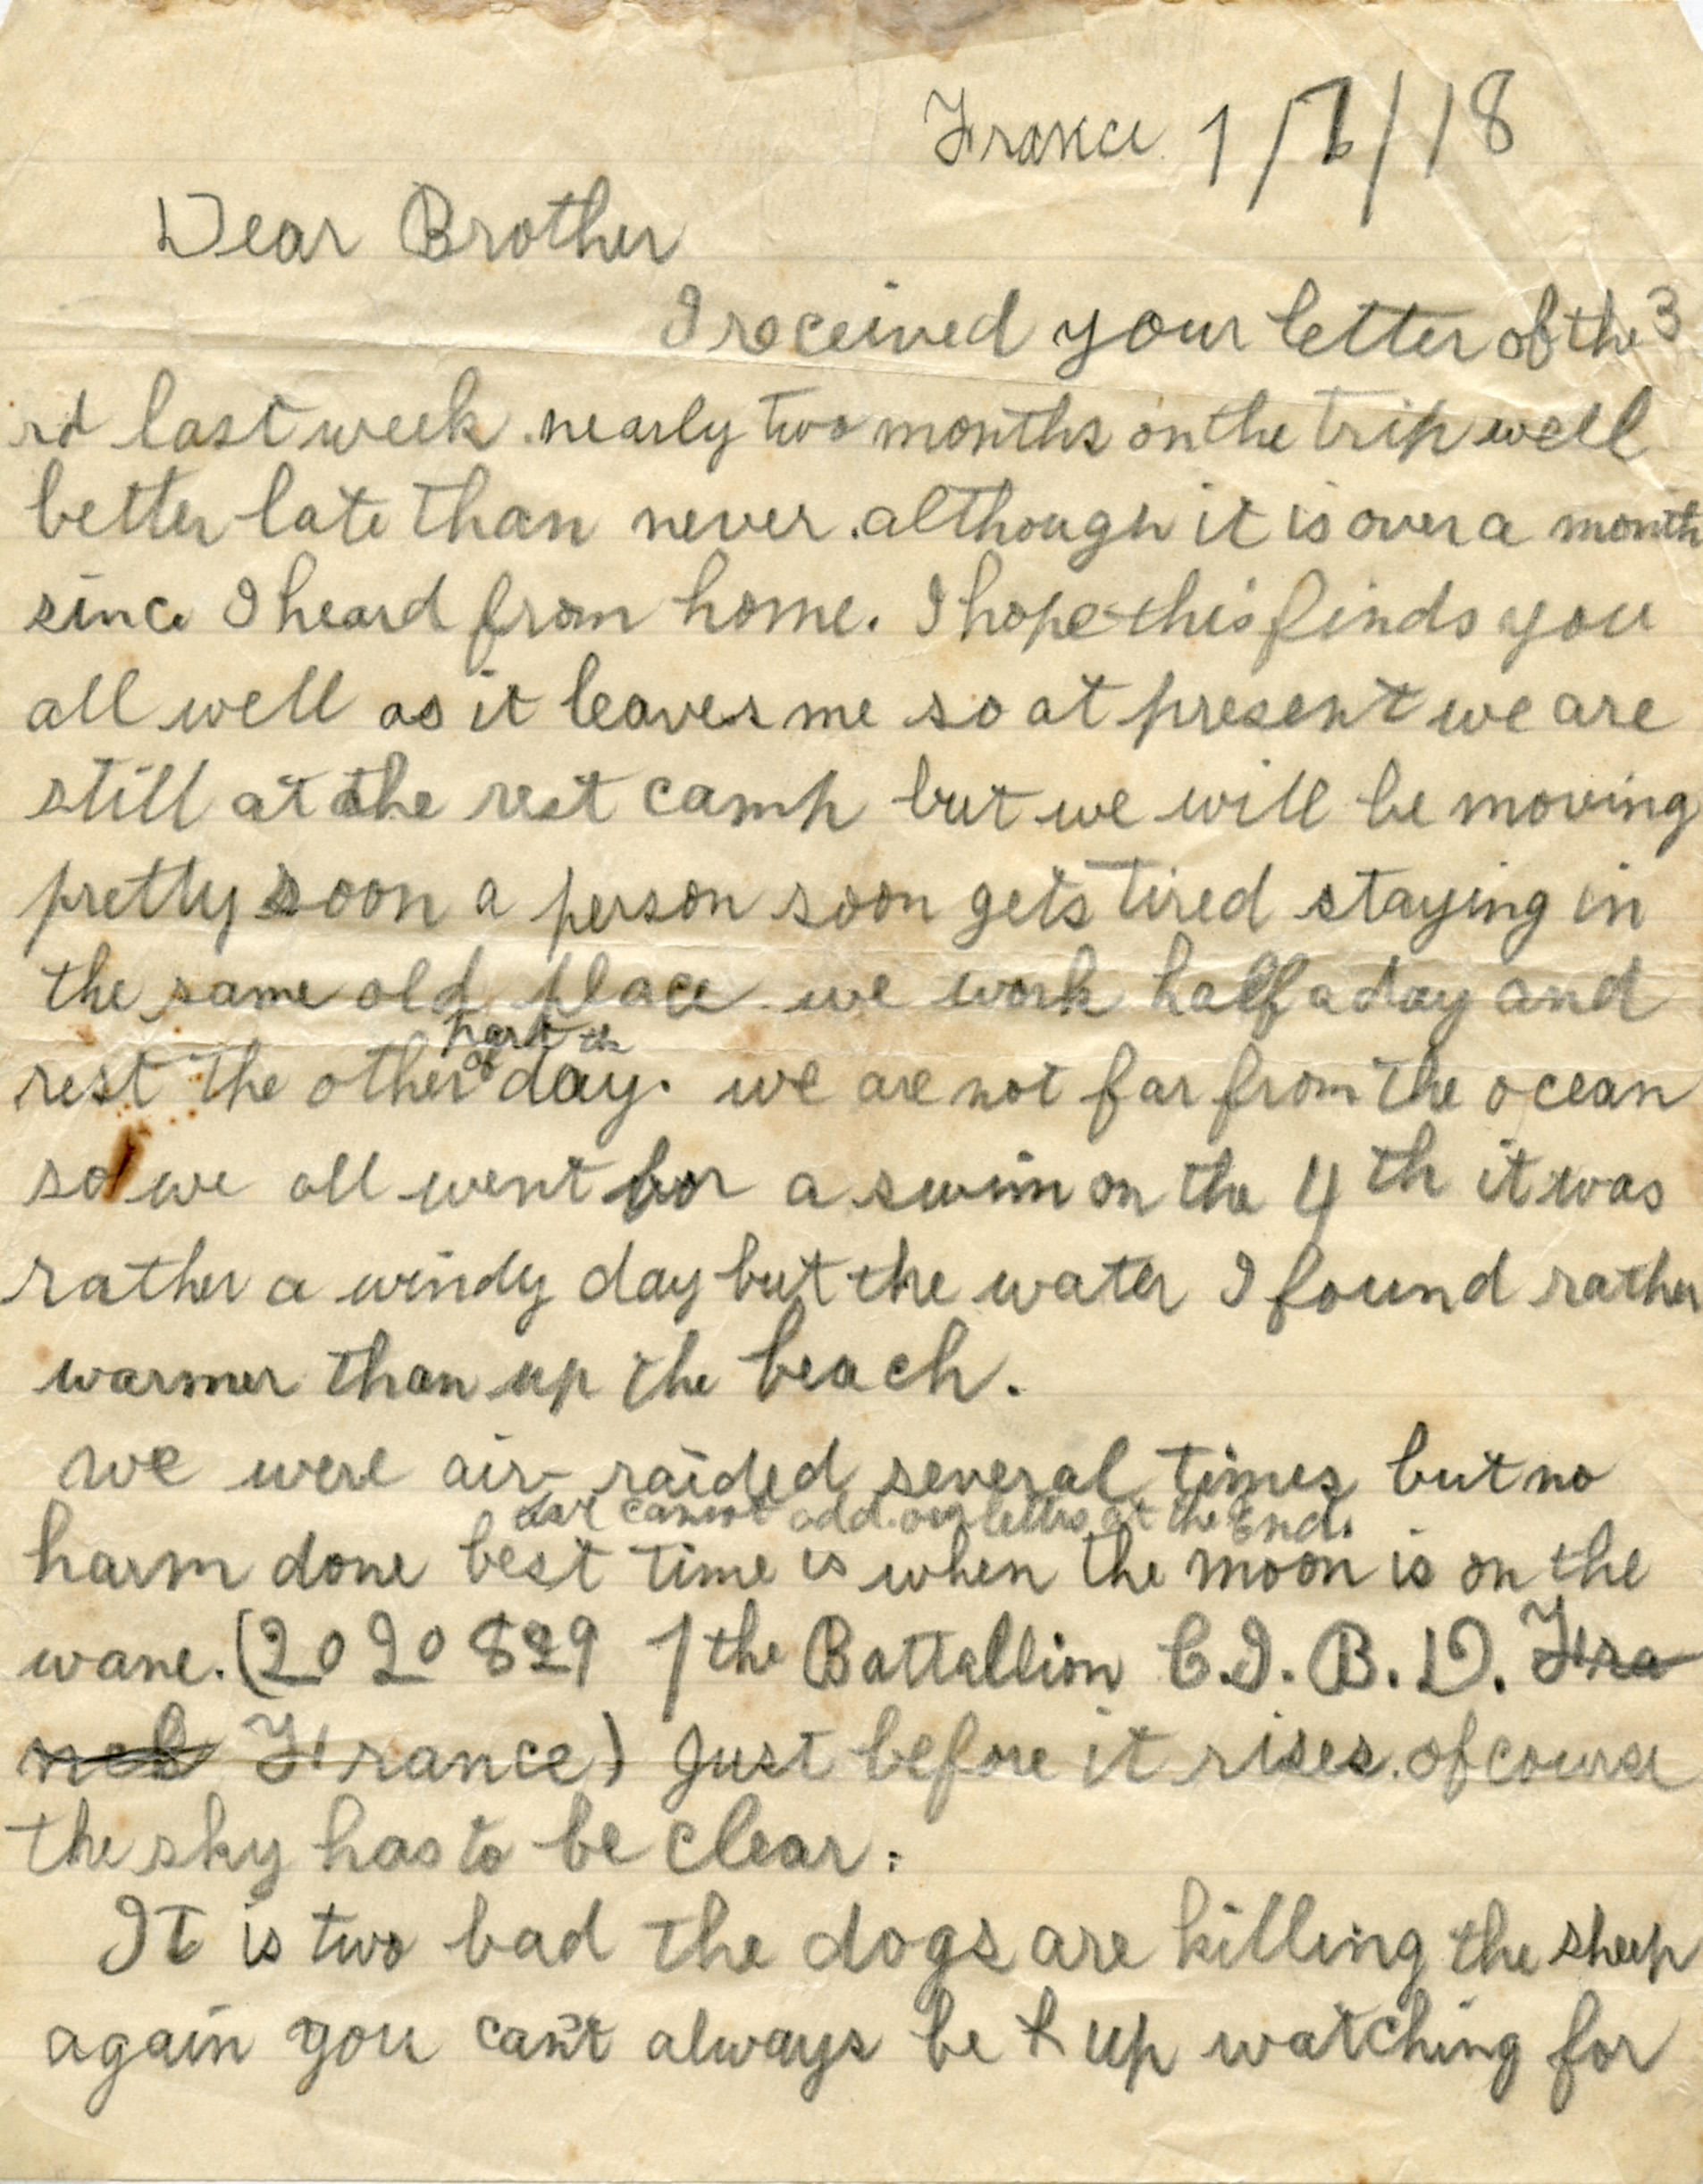 France 1/7/18
Dear Brother
I received your letter of the 3
rd last week. nearly two months on the trip well
better late than never. although it is over a month
since I heard from home. I hope this finds you
all well as it leaves me so at present we are
still at the rest camp but we will be moving
pretty soon a person soon gets tired staying in
the same old place we work half a day and
part of the
rest the other day. we are not far from the ocean
so we all went for a swim on the 4th it was
rather a windy day but the water I found rather
warmer than up the beach.
we were air-raided several times but no
cannot add our letters at the End.
harm done best time is when the moon is on the
wane. (2020829 1the Battallion C.I.B.D. Fra
nce France) Just before it rises. of course
the sky has to be clear.
It is two bad the dogs are killing the sheep
again you can't always be up watching for